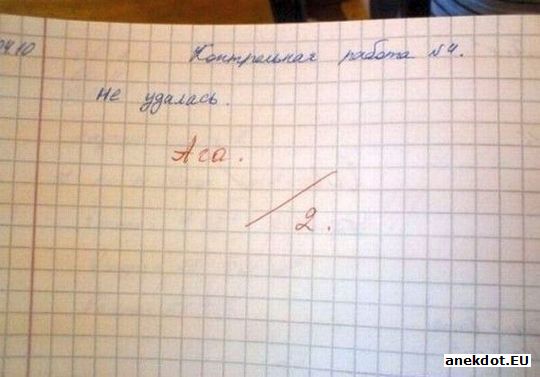 04.10
Контрольная работа №4.
Не удалась.
Ага.
2.
anekdot.EU